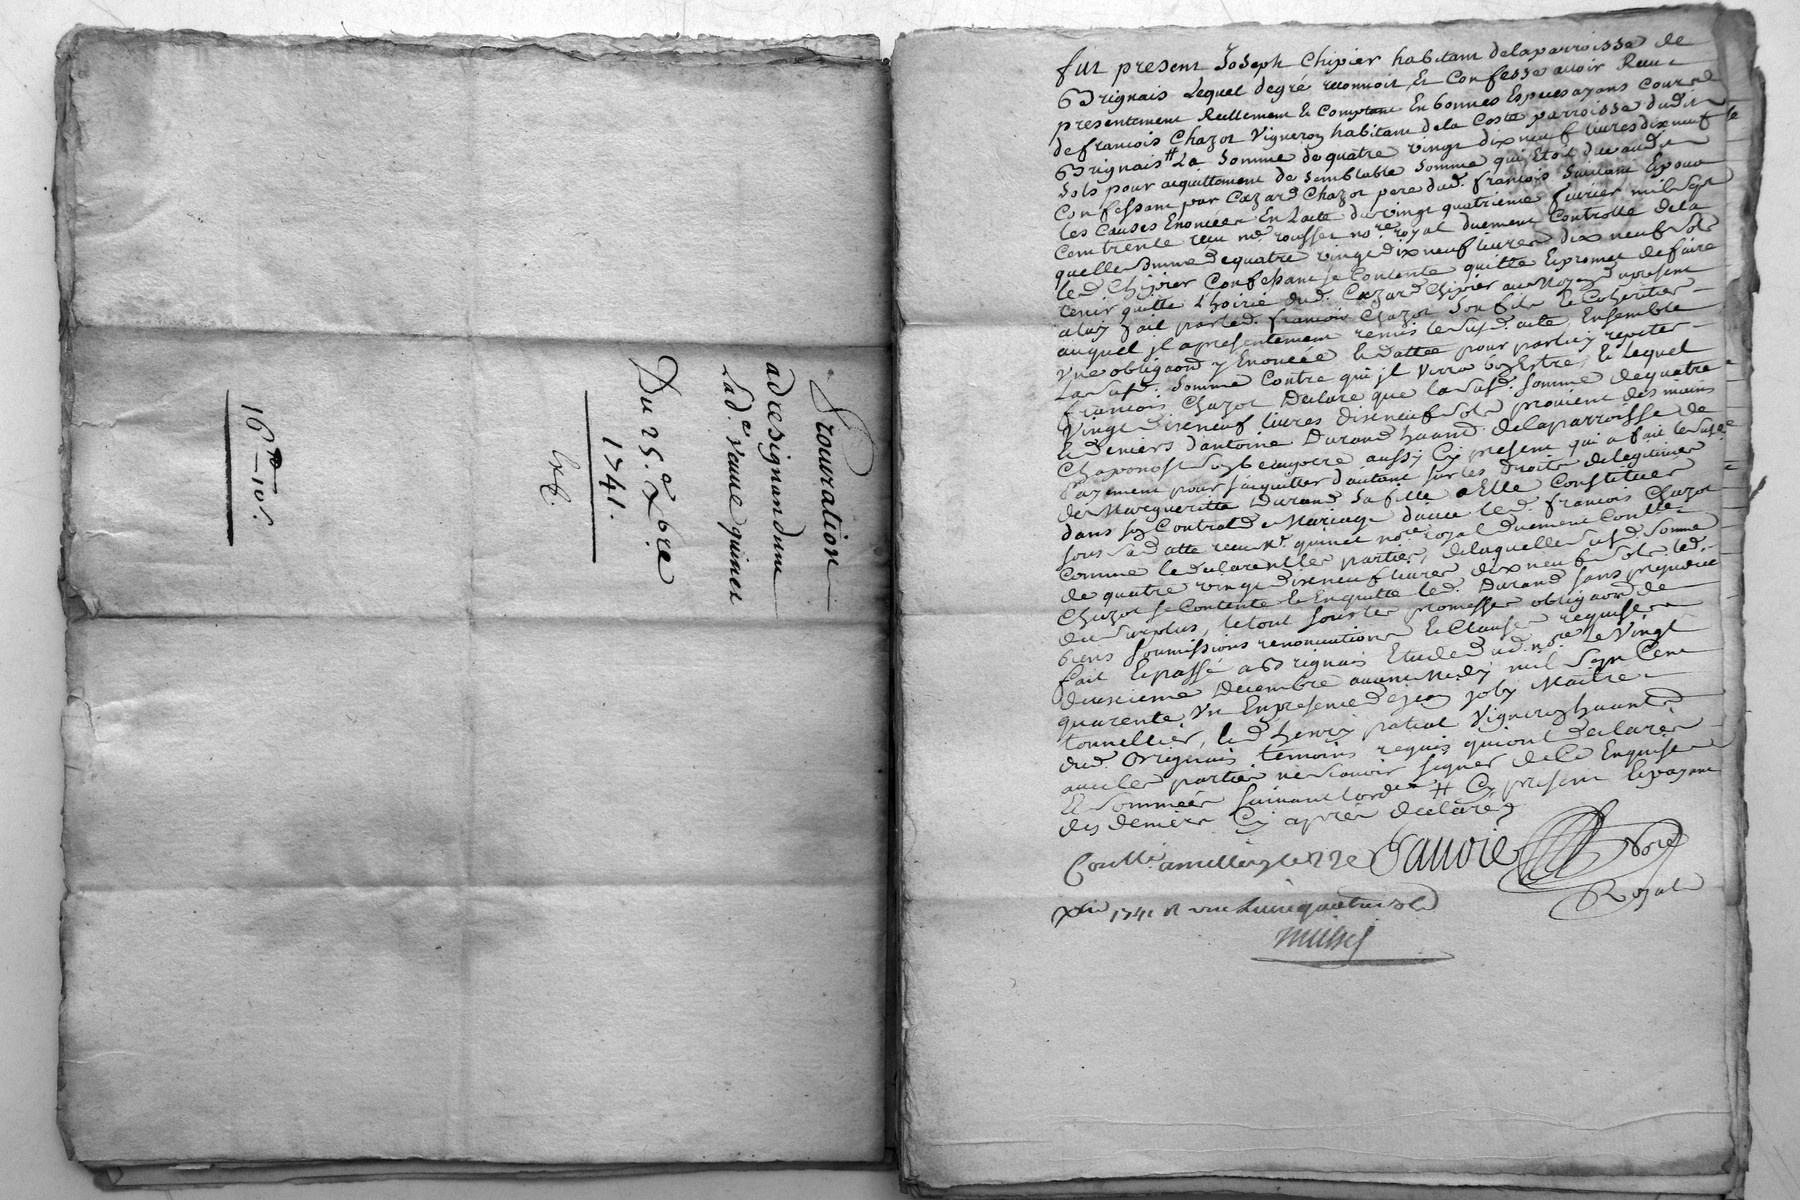 Procuration
ad resignandum
Lad.e veuve quinet
Du 25.e Xbre
1741.
Exp.
16 10 s.
fut present Joseph Chipier habitant dela parroisse de
Brignais Lequel degré reconnoit, Et Confesse avoir Receu
presentement Reellement & Comptant En bonnes Especes ayans Cours
de francois Chazot Vigneron habitant dela Coste parroisse dudit
Brignais # La Somme de quatre vingt dix neuf livres dix neuf
Sols pour acquittement de semblable Somme qui Etoit due audit
Confessant par Cezard Chazot pere dud. francois Suivant Epour
les Causes Enoncées En Lacte du vingt quatrieme fevrier mil Sept
Cent trente receu me. rousset no.re royal duement Controllé dela
quelle Somme de quatre vingt dix neuf livres dix neuf Sols
led. Chipier Confessant se Contente quitte Et promet de faire
tenir quitte L'hoirie dud. Cezard Chipier au Moyen du present
a luy fait par led. francois Chazot Son fils & Coheritier
auquel jl a presentement remis le susd. acte Ensemble
Vne obligaon y Enoncée & dattée pour par luy repeter
La susd. Somme Contre qui jl verra bon Estre, & Lequel
francois Chazot Declare que la susd. Somme de quatre
Vingt dixneuf livres dixneuf Sols provient des mains
& deniers d'antoine Durand hant. dela parroisse de
Chaponost Son beaupere aussy Cy present qui a fait le susd.
Payement pour s'acquitter d'autant sur les droits de legitime
de Margueritte Durand Sa fille a Elle Constitués
dans Son Contrat de Mariage d'avec led. francois Chazot
sous Sa datte receu Me. quinet no.re royal duement Contllé
Comme le declarent les parties, de laquelle susd. Somme
de quatre vingt dixneuf livres dix neuf Sols led.
Chazot se Contente & En quitte led. Durand sans prejudice
du Surplus, le tout sous les promesses obligaon de
biens soumissions renonciations & Clauses requises
fait & passé a Brignais Etude dud. no.re le Vingt
deuxieme Decembre avant Midy mil Sept Cent
quarente Vn En presence de jean joly Maitre
tonnellier, & d'henry patial Vigneron hants
dud. Brignais temoins requis qui ont declarés
avec les parties ne Scavoir signer de Ce Enquis
Et Sommées suivant lord.ce # Cy present & payant
des deniers Cy apres declarés
Contllé a millery le 22e Sauvoie Nore
Royal
Xbre 1741 R une Livre quatre sols